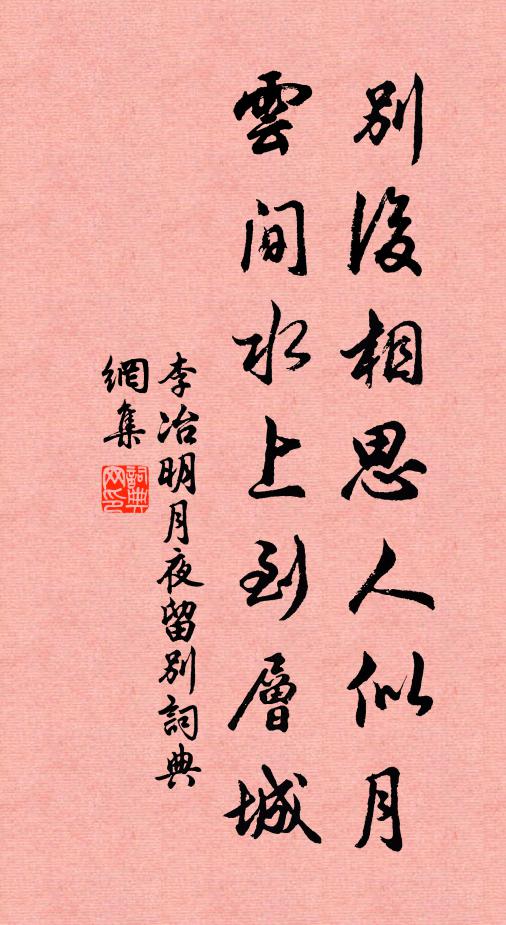 別後相思人似月
雲間水上到層城
李冶明月夜留別詞典
網集
詞典
网印